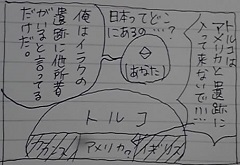 トルコは
アメリカと遺跡に
入って来ないで
日本ってどこ
にあるの…?
あなた
俺はイラクの
遺跡に他所者
がいると言ってる
だけだ。
トルコ
アメリカ
イギリス